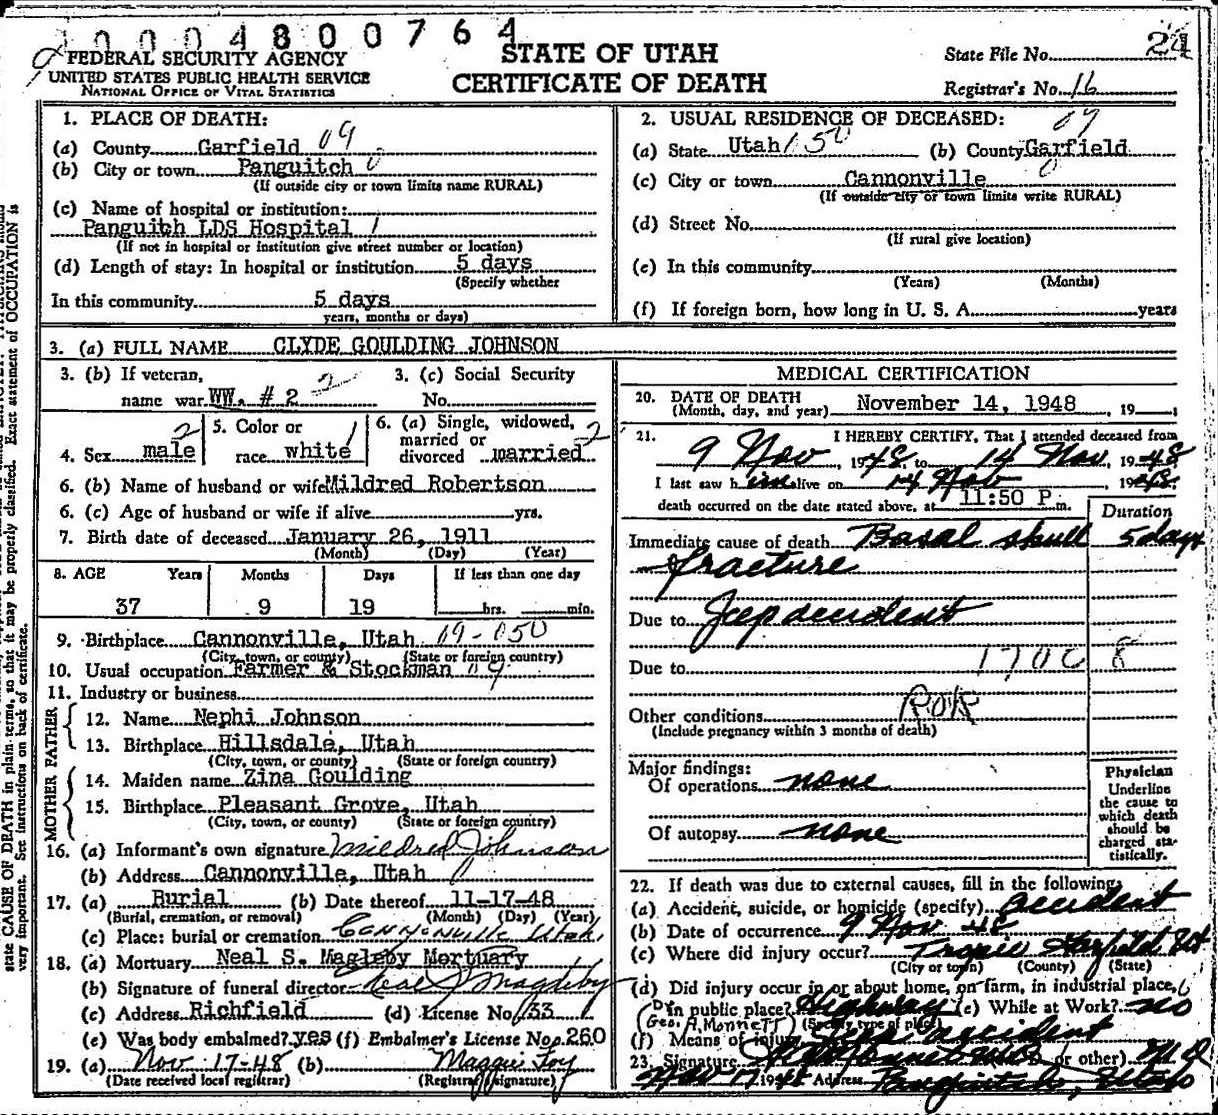 10004800764
FEDERAL SECURITY AGENCY
UNITED STATES PUBLIC HEALTH SERVICE
NATIONAL OFFICE OF VITAL STATISTICS
STATE OF UTAH
CERTIFICATE OF DEATH
State File No. 24
Registrar's No. 16
1. PLACE OF DEATH:
(a) County Garfield 09
(b) City or town Panguitch 0
(If outside city or town limits name RURAL)
(c) Name of hospital or institution:
Panguith LDS Hospital 1
(If not in hospital or institution give street number or location)
(d) Length of stay: In hospital or institution 5 days
(Specify whether
In this community 5 days
years, months or days)
2. USUAL RESIDENCE OF DECEASED: 09
(a) State Utah 150 (b) County Garfield
(c) City or town Cannonville 0
(If outside city or town limits write RURAL)
(d) Street No.
(If rural give location)
(e) In this community
(Years) (Months)
(f) If foreign born, how long in U. S. A. years
3. (a) FULL NAME CLYDE GOULDING JOHNSON
3. (b) If veteran, 3. (c) Social Security
name war WW. # 2 2 No.
4. Sex male 2 5. Color or race white 1 6. (a) Single, widowed, married or divorced married 2
6. (b) Name of husband or wife Mildred Robertson
6. (c) Age of husband or wife if alive yrs.
7. Birth date of deceased January 26, 1911
(Month) (Day) (Year)
8. AGE Years Months Days If less than one day
37 9 19 hrs. min.
9. Birthplace Cannonville, Utah 09-050
(City, town, or county) (State or foreign country)
10. Usual occupation Farmer & Stockman 09
11. Industry or business
FATHER
12. Name Nephi Johnson
13. Birthplace Hillsdale, Utah
(City, town, or county) (State or foreign country)
MOTHER
14. Maiden name Zina Goulding
15. Birthplace Pleasant Grove, Utah
(City, town, or county) (State or foreign country)
16. (a) Informant's own signature Mildred Johnson
(b) Address Cannonville, Utah 0
17. (a) Burial (b) Date thereof 11-17-48
(Burial, cremation, or removal) (Month) (Day) (Year)
(c) Place: burial or cremation Cannonville Utah
18. (a) Mortuary Neal S. Magleby Mortuary
(b) Signature of funeral director Neal S Magleby
(c) Address Richfield (d) License No. 133
(e) Was body embalmed? yes (f) Embalmer's License No. 260
19. (a) Nov 17-48 (b) Maggie Foy
(Date received local registrar) (Registrar's signature)
MEDICAL CERTIFICATION
20. DATE OF DEATH
(Month, day, and year) November 14, 1948, 19
21. I HEREBY CERTIFY, That I attended deceased from
9 Nov, 1948, to 14 Nov, 1948
I last saw him alive on 14 Nov, 1948.
death occurred on the date stated above, at 11:50 P m.
Duration
Immediate cause of death Basal skull 5 days
fracture
Due to Jeep accident
Due to 170C 8
Other conditions
(Include pregnancy within 3 months of death)
Major findings:
Of operations none
Of autopsy none
Physician
Underline
the cause to
which death
should be
charged sta-
tistically.
22. If death was due to external causes, fill in the following:
(a) Accident, suicide, or homicide (specify) Accident
(b) Date of occurrence 9 Nov 48
(c) Where did injury occur? Tropic Garfield Ut
(City or town) (County) (State)
(d) Did injury occur in or about home, on farm, in industrial place,
in public place? Highway (e) While at Work? no
(Dr. Geo. A. Monnett) (Specify type of place)
(f) Means of injury Jeep accident
23. Signature (M.D. or other) M D
Nov 17 1948 Address Panguitch, Utah
state CAUSE OF DEATH in plain terms, so that it may be properly classified. Exact statement of OCCUPATION is
very important. See instructions on back of certificate.